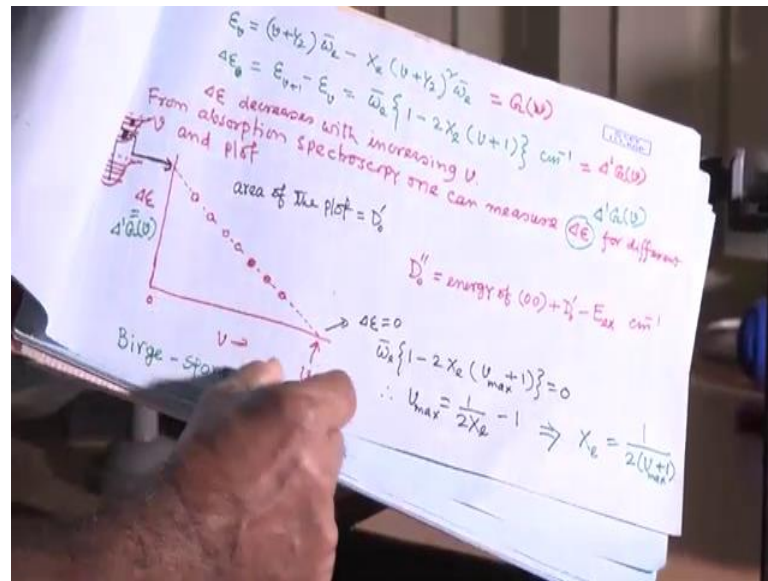 ε_v = (v+1/2) ω̄_e − x_e (v+1/2)² ω̄_e = G(v)
Δε_v = ε_{v+1} − ε_v = ω̄_e {1 − 2x_e (v+1)} cm⁻¹ = Δ'G(v)
Δε decreases with increasing v.
From absorption spectroscopy one can measure Δε for different
Δ'G(v)
v and plot
v
area of the plot = D₀'
Δε
Δ'G(v)
D₀'' = energy of (00) + D₀' − E_ex cm⁻¹
0
v →
→ Δε = 0
ω̄_e {1 − 2x_e (v_max + 1)} = 0
∴ v_max = 1/(2x_e) − 1 ⇒ x_e = 1/(2(v_max+1))
Birge-